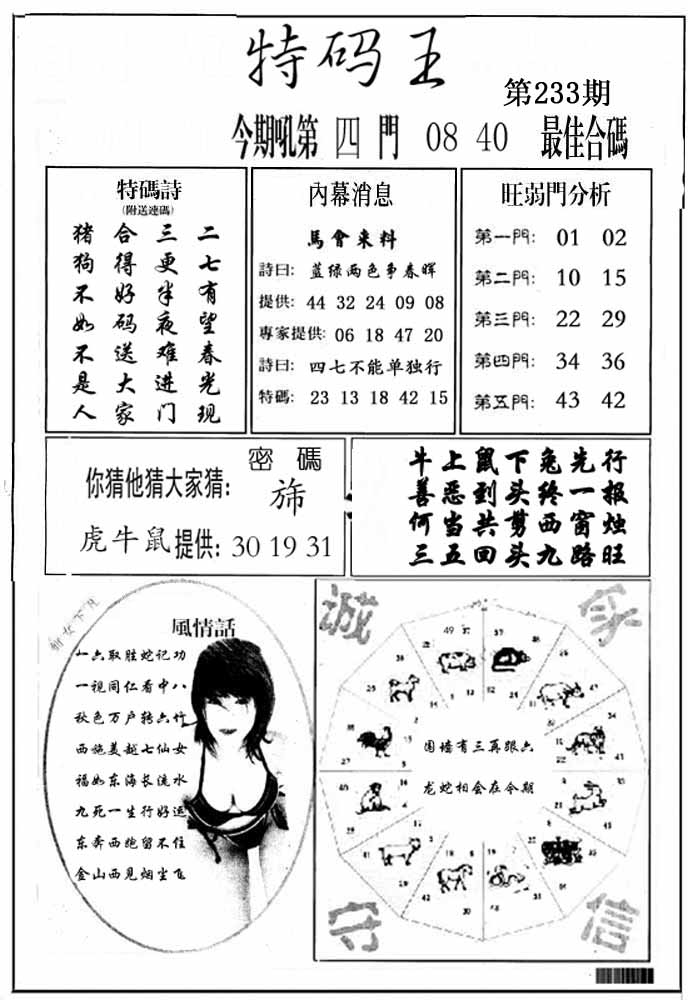 特码王
第233期
今期吼第 四 門 08 40 最佳合碼
特碼詩
(附送連碼)
猪 合 三 二
狗 得 更 七
不 好 半 有
如 码 夜 望
不 送 难 春
是 大 进 光
人 家 门 现
內幕消息
馬會来料
詩曰: 蓝绿两色争春晖
提供: 44 32 24 09 08
專家提供: 06 18 47 20
詩曰: 四七不能单独行
特碼: 23 13 18 42 15
旺弱門分析
第一門: 01 02
第二門: 10 15
第三門: 22 29
第四門: 34 36
第五門: 43 42
密 碼
你猜他猜大家猜:
虎牛鼠提供: 30 19 31
牛上鼠下兔先行
善恶到头终一报
何当共剪西窗烛
三五回头九路旺
風情話
一六取胜蛇记功
一视同仁看中八
秋色万户转六竹
西施美越七仙女
福如东海长流水
九死一生行好运
东奔西跑留不住
金山西见烟尘飞
诚
守
信
围墙有三再跟六
龙蛇相会在今期